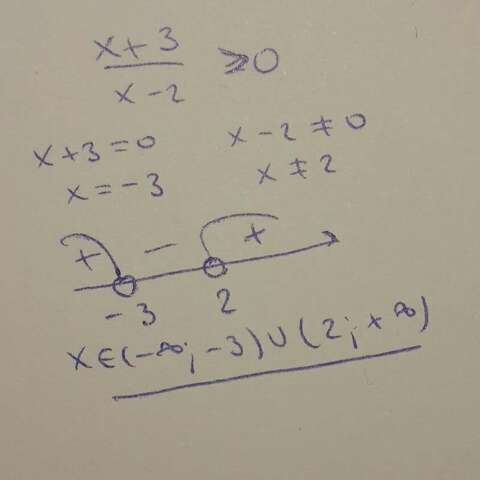 x+3
x-2
≥0
x+3=0
x-2≠0
x=-3
x≠2
+ - +
-3 2
x∈(-∞;-3)∪(2;+∞)